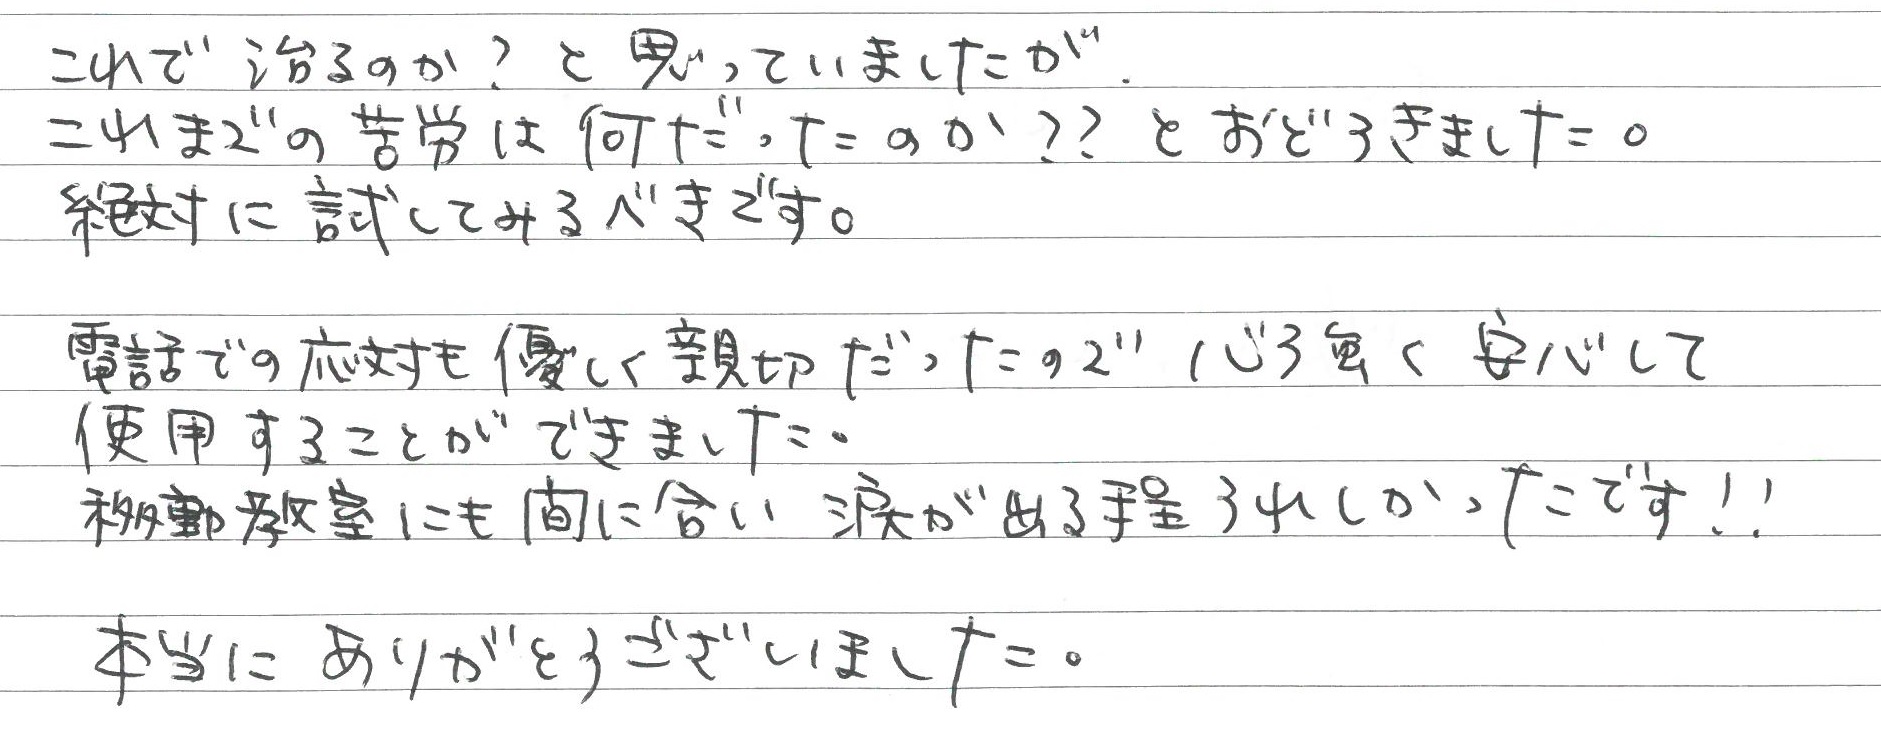 これで治るのか?と思っていましたが.
これまでの苦労は何だったのか??とおどろきました。
絶対に試してみるべきです。
電話での応対も優しく親切だったので心強く安心して
使用することができました。
移動教室にも間に合い涙が出る程うれしかったです!!
本当にありがとうございました。